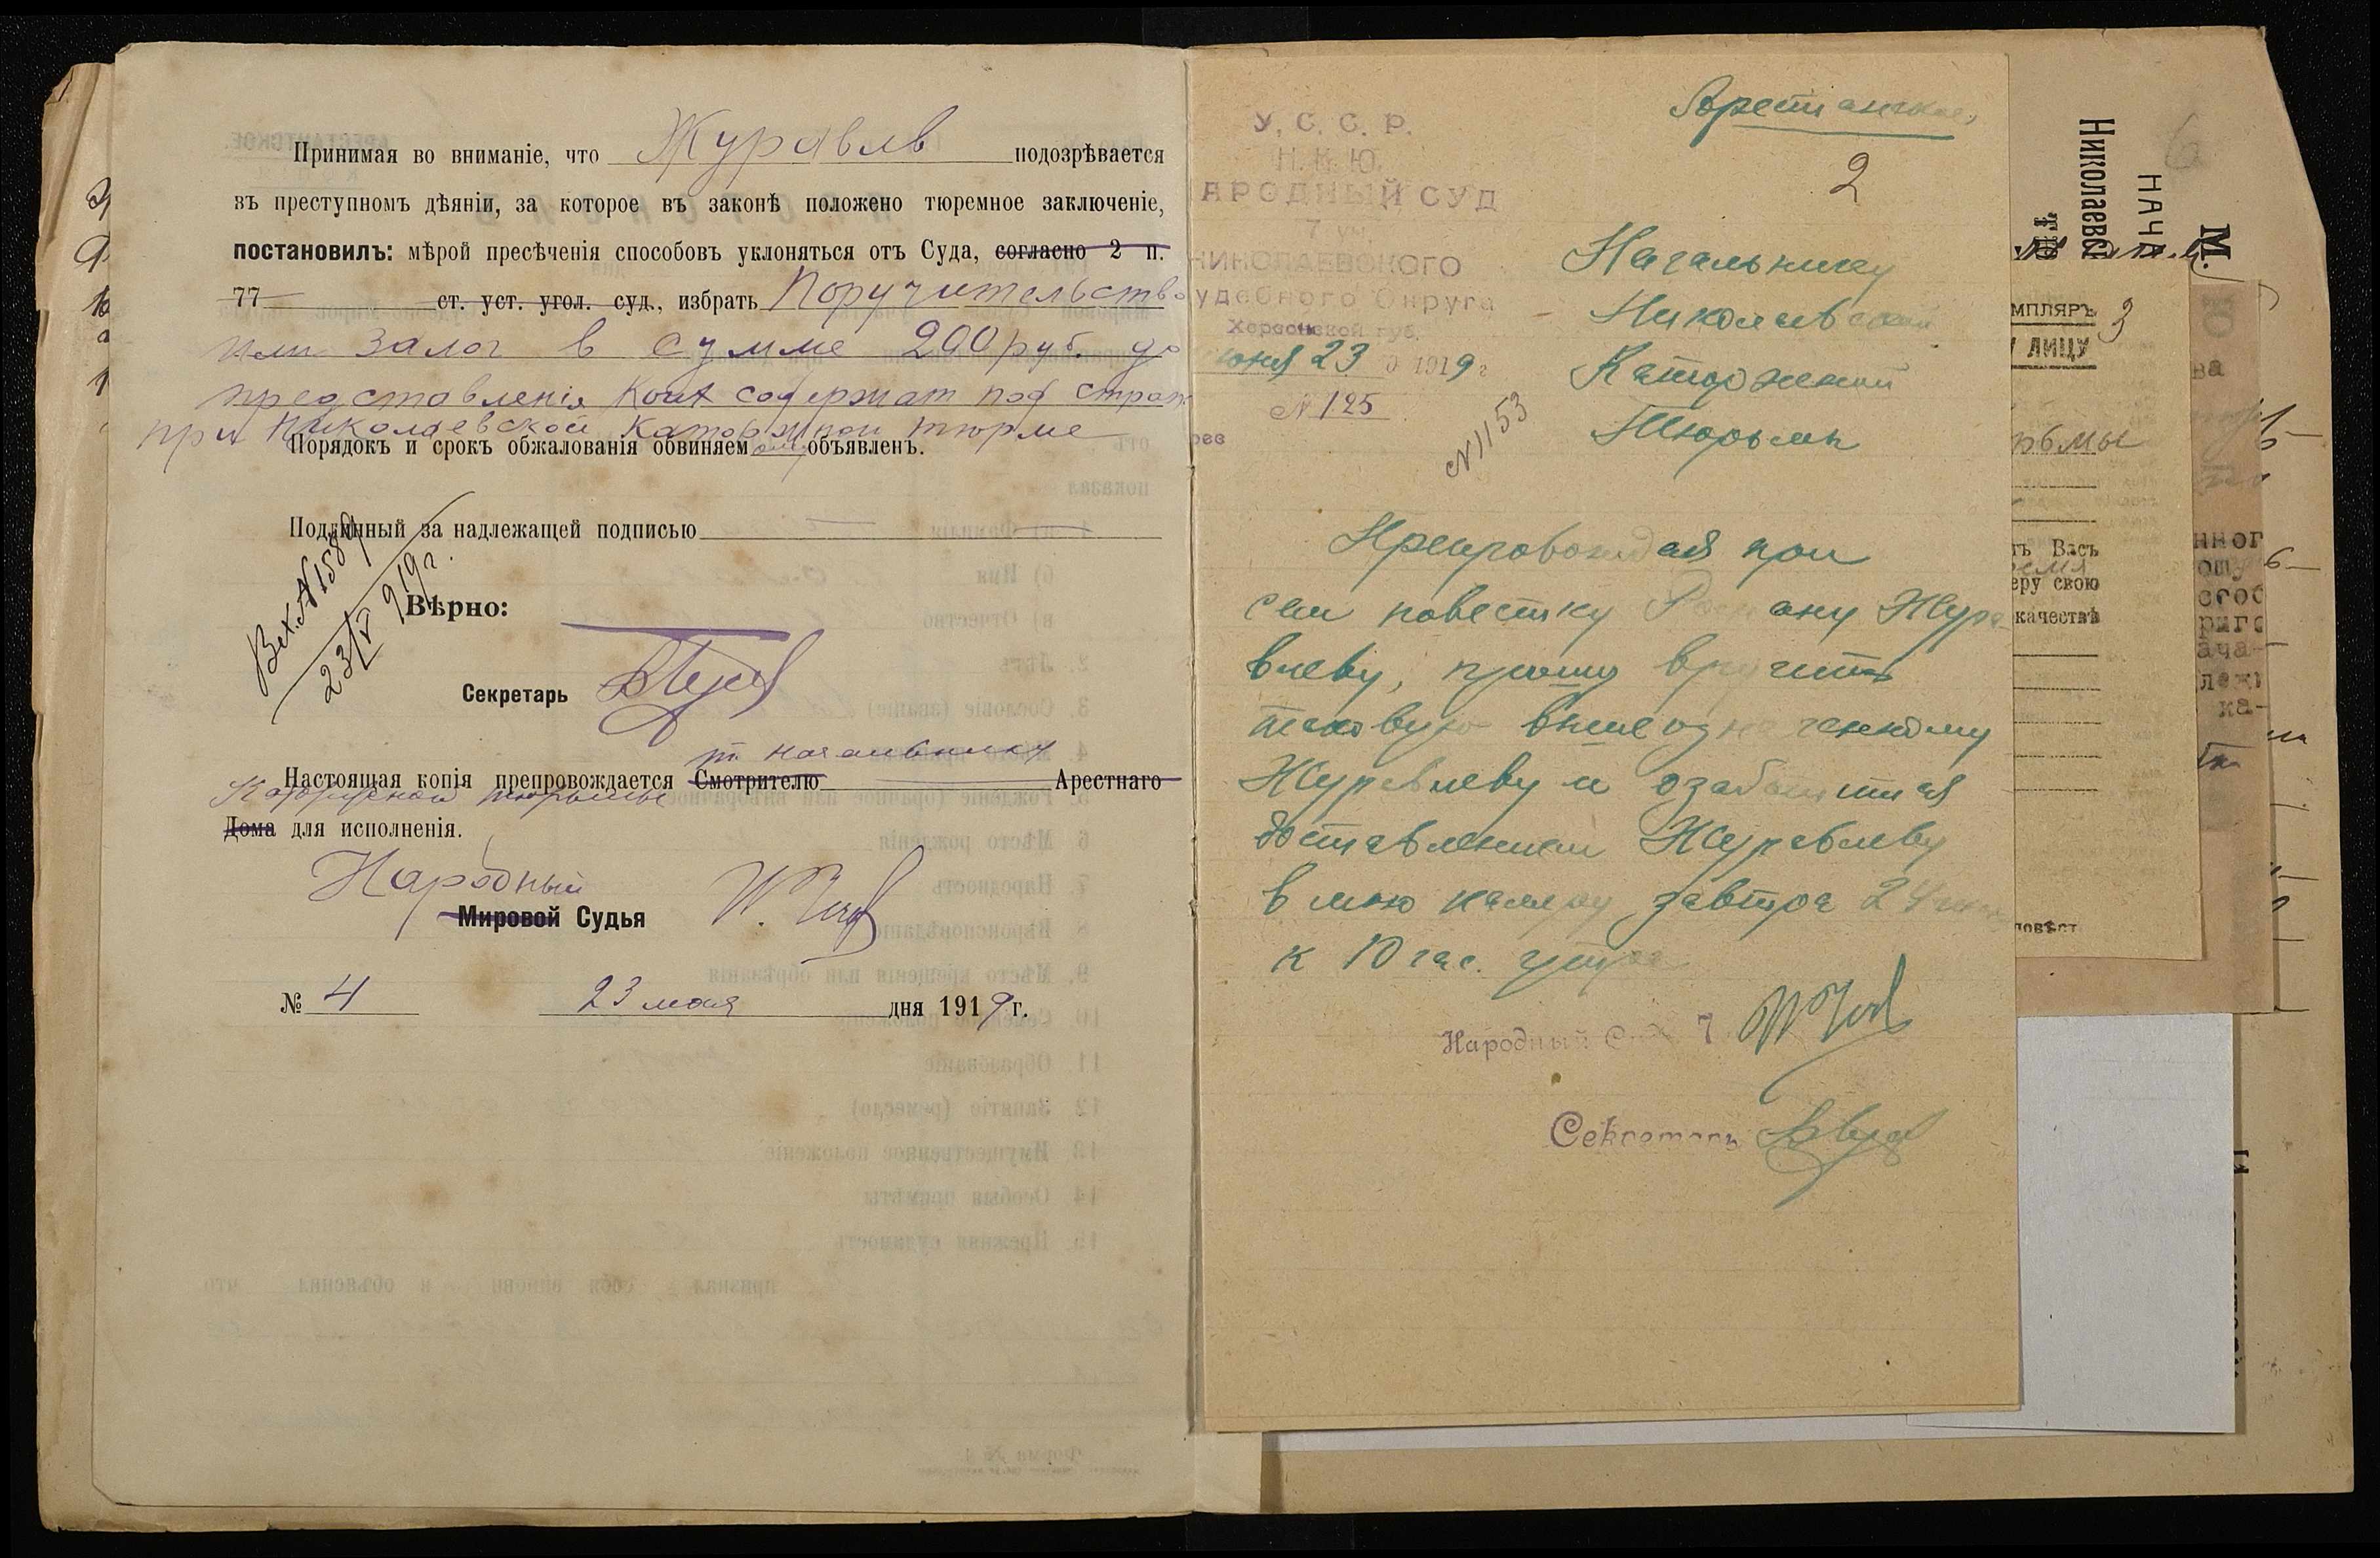 Принимая во вниманіе, что Журавлв подозрѣвается
въ преступномъ дѣяніи, за которое въ законѣ положено тюремное заключеніе,
постановилъ: мѣрой пресѣченія способовъ уклоняться отъ Суда, согласно 2 п.
77 ст. уст. угол. суд., избрать Поручительство
или залог в сумме 200 руб. до
представленія коих содержат под страж
при Николаевской Каторжной тюрме
Порядокъ и срокъ обжалованія обвиняемому объявленъ.
Подлинный за надлежащей подписью
Вх. №158
23/V 919 г.
Вѣрно:
Секретарь
т. начальнику
Настоящая копія препровождается Смотрителю Арестнаго
Каторжной тюрьмы
Дома для исполненія.
Народный
Мировой Судья
№ 4 23 мая дня 1919 г.
Арестантское
2
У. С. С. Р.
Н. К. Ю.
АРОДНЫЙ СУД
7 уч.
НИКОЛАЕВСКОГО
удебного Округа
Херсонской губ.
июня 23 1919 г
№ 125
№ 1153
Начальнику
Николаевской
Каторжной
Тюрьмы
Препровождая при
сем повестку Роману Жура
влеву, прошу вручить
таковую вышеозначенному
Журавлеву и озаботится
доставлением Журавлеву
в мою камеру завтра 24 июня
к 10 час. утра
Народный Суд 7
Секретарь
6
М.
НАЧА
Николаевс
МПЛЯРЪ
3
У ЛИЦУ
рьмы
ть Васъ
еру свою
качествѣ
повѣст
ва
нног
ошу
ача-
ка-